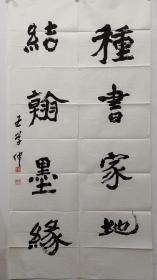 種書家地
結翰墨緣
王學仲